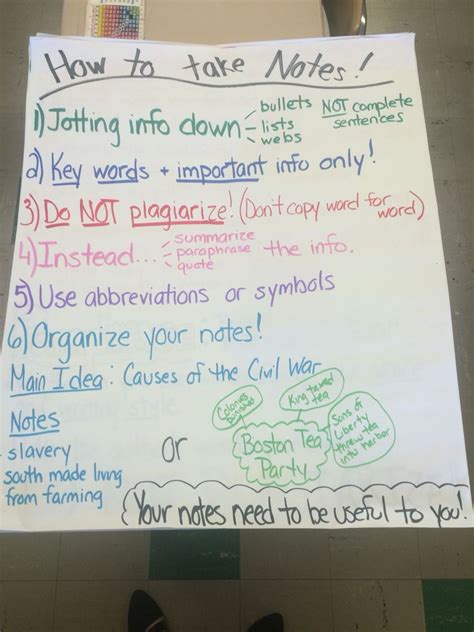 How to take Notes!
1) Jotting info down - bullets
- lists
- webs
NOT complete
sentences
2) Key words + important info only!
3) Do NOT plagiarize! (Don't copy word for
word)
4) Instead... summarize
paraphrase
quote
the info.
5) Use abbreviations or symbols
6) Organize your notes!
Main Idea: Causes of the Civil War
Notes
- slavery
south made living
from farming
or
Colonies
punished
King taxed
tea
Boston Tea
Party
Sons of
Liberty
threw tea
into harbor
Your notes need to be useful to you!